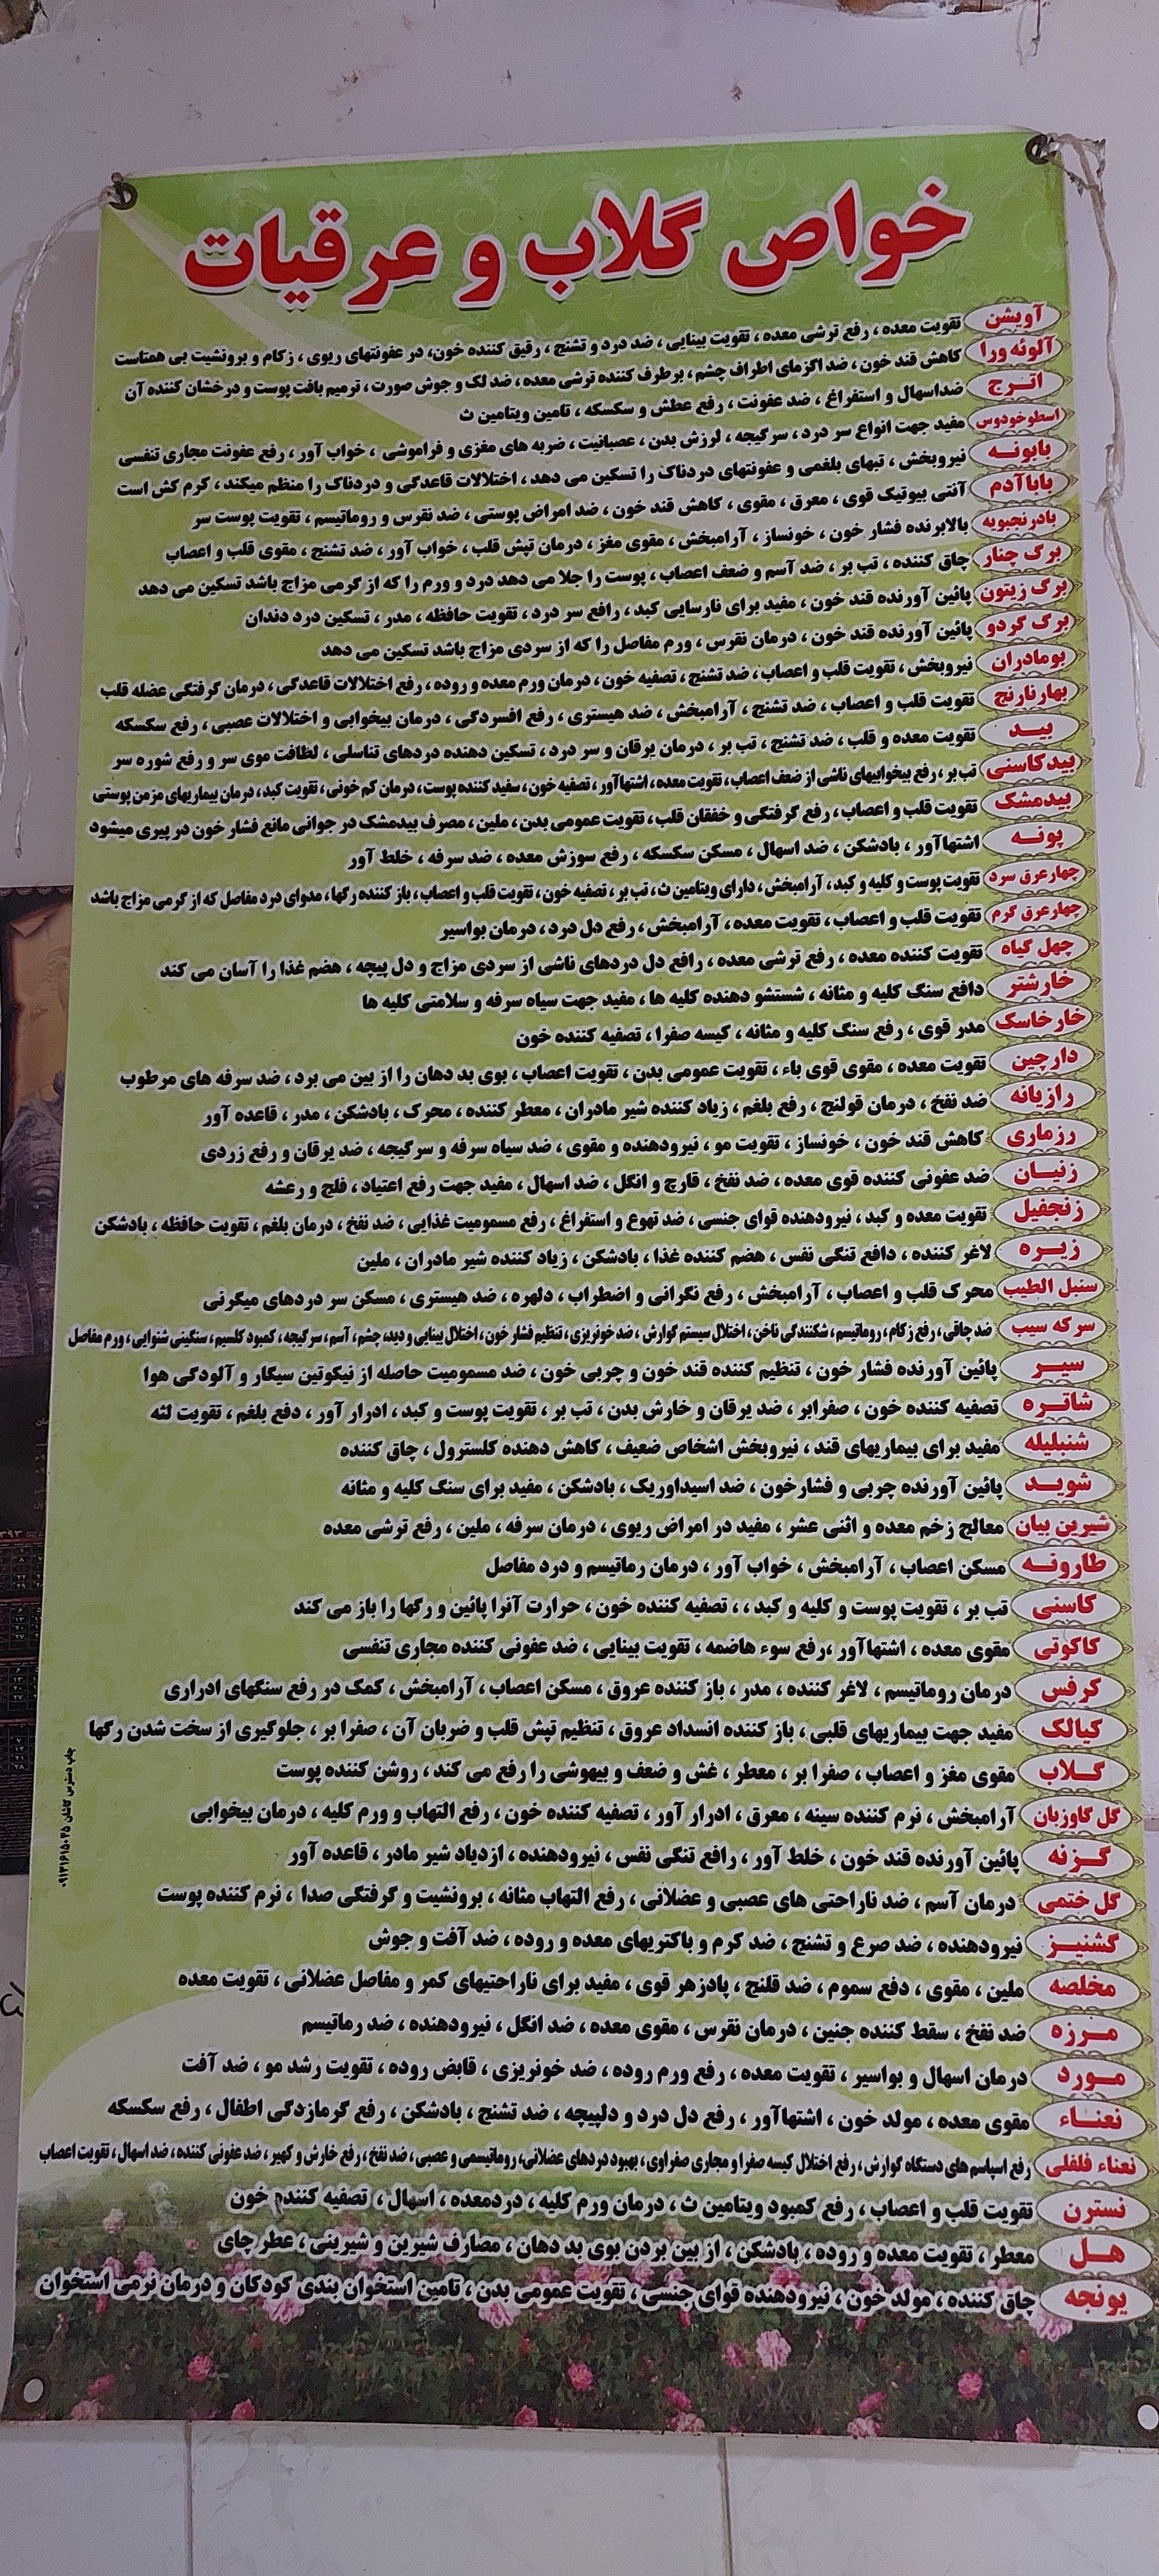 خواص گلاب و عرقیات
آویشن تقویت معده ، رفع ترشی معده ، تقویت بینایی ، ضد درد و تشنج ، رقیق کننده خون، در عفونتهای ریوی ، زکام و برونشیت بی همتاست
آلوئه ورا کاهش قند خون ، ضد اگزمای اطراف چشم ، برطرف کننده ترشی معده ، ضد لک و جوش صورت ، ترمیم بافت پوست و درخشان کننده آن
اتـرج ضداسهال و استفراغ ، ضد عفونت ، رفع عطش و سکسکه ، تامین ویتامین ث
اسطوخودوس مفید جهت انواع سر درد ، سرگیجه ، لرزش بدن ، عصبانیت ، ضربه های مغزی و فراموشی ، خواب آور ، رفع عفونت مجاری تنفسی
بابونـه نیروبخش ، تبهای بلغمی و عفونتهای دردناک را تسکین می دهد ، اختلالات قاعدگی و دردناک را منظم میکند ، کرم کش است
باباآدم آنتی بیوتیک قوی ، معرق ، مقوی ، کاهش قند خون ، ضد امراض پوستی ، ضد نقرس و روماتیسم ، تقویت پوست سر
بادرنجبویه بالابرنده فشار خون ، خونساز ، آرامبخش ، مقوی مغز ، درمان تپش قلب ، خواب آور ، ضد تشنج ، مقوی قلب و اعصاب
برگ چنار چاق کننده ، تب بر ، ضد آسم و ضعف اعصاب ، پوست را جلا می دهد درد و ورم را که از گرمی مزاج باشد تسکین می دهد
برگ زیتون پائین آورنده قند خون ، مفید برای نارسایی کبد ، رافع سر درد ، تقویت حافظه ، مدر ، تسکین درد دندان
برگ گردو پائین آورنده قند خون ، درمان نقرس ، ورم مفاصل را که از سردی مزاج باشد تسکین می دهد
بومادران نیروبخش ، تقویت قلب و اعصاب ، ضد تشنج ، تصفیه خون ، درمان ورم معده و روده ، رفع اختلالات قاعدگی ، درمان گرفتگی عضله قلب
بهارنارنج تقویت قلب و اعصاب ، ضد تشنج ، آرامبخش ، ضد هیستری ، رفع افسردگی ، درمان بیخوابی و اختلالات عصبی ، رفع سکسکه
بیـد تقویت معده و قلب ، ضد تشنج ، تب بر ، درمان یرقان و سر درد ، تسکین دهنده دردهای تناسلی ، لطافت موی سر و رفع شوره سر
بیدکاسنی تب بر ، رفع بیخوابیهای ناشی از ضعف اعصاب ، تقویت معده ، اشتهاآور ، تصفیه خون ، سفید کننده پوست ، درمان کم خونی ، تقویت کبد ، درمان بیماریهای مزمن پوستی
بیدمشک تقویت قلب و اعصاب ، رفع گرفتگی و خفقان قلب ، تقویت عمومی بدن ، ملین ، مصرف بیدمشک در جوانی مانع فشار خون در پیری میشود
پونـه اشتهاآور ، بادشکن ، ضد اسهال ، مسکن سکسکه ، رفع سوزش معده ، ضد سرفه ، خلط آور
چهارعرق سرد تقویت پوست و کلیه و کبد ، آرامبخش ، دارای ویتامین ث ، تب بر ، تصفیه خون ، تقویت قلب و اعصاب ، باز کننده رگها ، مدوای درد مفاصل که از گرمی مزاج باشد
چهارعرق گرم تقویت قلب و اعصاب ، تقویت معده ، آرامبخش ، رفع دل درد ، درمان بواسیر
چهل گیاه تقویت کننده معده ، رفع ترشی معده ، رافع دل دردهای ناشی از سردی مزاج و دل پیچه ، هضم غذا را آسان می کند
خارشتر دافع سنگ کلیه و مثانه ، شستشو دهنده کلیه ها ، مفید جهت سیاه سرفه و سلامتی کلیه ها
خارخاسک مدر قوی ، رفع سنگ کلیه و مثانه ، کیسه صفرا ، تصفیه کننده خون
دارچین تقویت معده ، مقوی قوی باء ، تقویت عمومی بدن ، تقویت اعصاب ، بوی بد دهان را از بین می برد ، ضد سرفه های مرطوب
رازیانه ضد نفخ ، درمان قولنج ، رفع بلغم ، زیاد کننده شیر مادران ، معطر کننده ، محرک ، بادشکن ، مدر ، قاعده آور
رزماری کاهش قند خون ، خونساز ، تقویت مو ، نیرودهنده و مقوی ، ضد سیاه سرفه و سرگیجه ، ضد یرقان و رفع زردی
زنیـان ضد عفونی کننده قوی معده ، ضد نفخ ، قارچ و انگل ، ضد اسهال ، مفید جهت رفع اعتیاد ، فلج و رعشه
زنجفیل تقویت معده و کبد ، نیرودهنده قوای جنسی ، ضد تهوع و استفراغ ، رفع مسمومیت غذایی ، ضد نفخ ، درمان بلغم ، تقویت حافظه ، بادشکن
زیـره لاغر کننده ، دافع تنگی نفس ، هضم کننده غذا ، بادشکن ، زیاد کننده شیر مادران ، ملین
سنبل الطیب محرک قلب و اعصاب ، آرامبخش ، رفع نگرانی و اضطراب ، دلهره ، ضد هیستری ، مسکن سر دردهای میگرنی
سرکه سیب ضد چاقی ، رفع زکام ، روماتیسم ، شکنندگی ناخن ، اختلال سیستم گوارش ، ضد خونریزی ، تنظیم فشار خون ، اختلال بینایی و دید، چشم ، آسم ، سرگیجه ، کمبود کلسیم ، سنگینی شنوایی ، ورم مفاصل
سیـر پائین آورنده فشار خون ، تنظیم کننده قند خون و چربی خون ، ضد مسمومیت حاصله از نیکوتین سیگار و آلودگی هوا
شاتـره تصفیه کننده خون ، صفرابر ، ضد یرقان و خارش بدن ، تب بر ، تقویت پوست و کبد ، ادرار آور ، دفع بلغم ، تقویت لثه
شنبلیله مفید برای بیماریهای قند ، نیروبخش اشخاص ضعیف ، کاهش دهنده کلسترول ، چاق کننده
شویـد پائین آورنده چربی و فشارخون ، ضد اسیداوریک ، بادشکن ، مفید برای سنگ کلیه و مثانه
شیرین بیان معالج زخم معده و اثنی عشر ، مفید در امراض ریوی ، درمان سرفه ، ملین ، رفع ترشی معده
طارونـه مسکن اعصاب ، آرامبخش ، خواب آور ، درمان رماتیسم و درد مفاصل
کاسنی تب بر ، تقویت پوست و کلیه و کبد ، ، تصفیه کننده خون ، حرارت آنرا پائین و رگها را باز می کند
کاکوتی مقوی معده ، اشتهاآور ،رفع سوء هاضمه ، تقویت بینایی ، ضد عفونی کننده مجاری تنفسی
کرفس درمان روماتیسم ، لاغر کننده ، مدر ، باز کننده عروق ، مسکن اعصاب ، آرامبخش ، کمک در رفع سنگهای ادراری
کیالک مفید جهت بیماریهای قلبی ، باز کننده انسداد عروق ، تنظیم تپش قلب و ضربان آن ، صفرا بر ، جلوگیری از سخت شدن رگها
گـلاب مقوی مغز و اعصاب ، صفرا بر ، معطر ، غش و ضعف و بیهوشی را رفع می کند ، روشن کننده پوست
گل گاوزبان آرامبخش ، نرم کننده سینه ، معرق ، ادرار آور ، تصفیه کننده خون ، رفع التهاب و ورم کلیه ، درمان بیخوابی
گـزنه پائین آورنده قند خون ، خلط آور ، رافع تنگی نفس ، نیرودهنده ، ازدیاد شیر مادر ، قاعده آور
گل ختمی درمان آسم ، ضد ناراحتی های عصبی و عضلانی ، رفع التهاب مثانه ، برونشیت و گرفتگی صدا ، نرم کننده پوست
گشنیـز نیرودهنده ، ضد صرع و تشنج ، ضد کرم و باکتریهای معده و روده ، ضد آفت و جوش
مخلصه ملین ، مقوی ، دفع سموم ، ضد قلنج ، پادزهر قوی ، مفید برای ناراحتیهای کمر و مفاصل عضلانی ، تقویت معده
مـرزه ضد نفخ ، سقط کننده جنین ، درمان نقرس ، مقوی معده ، ضد انگل ، نیرودهنده ، ضد رماتیسم
مـورد درمان اسهال و بواسیر ، تقویت معده ، رفع ورم روده ، ضد خونریزی ، قابض روده ، تقویت رشد مو ، ضد آفت
نعنـاء مقوی معده ، مولد خون ، اشتهاآور ، رفع دل درد و دلپیچه ، ضد تشنج ، بادشکن ، رفع گرمازدگی اطفال ، رفع سکسکه
نعناء فلفلی رفع اسپاسم های دستگاه گوارش ، رفع اختلال کیسه صفرا و مجاری صفراوی ، بهبود دردهای عضلانی، روماتیسمی و عصبی ، ضد نفخ ، رفع خارش و کهیر ، ضد عفونی کننده ، ضد اسهال ، تقویت اعصاب
نسترن تقویت قلب و اعصاب ، رفع کمبود ویتامین ث ، درمان ورم کلیه ، دردمعده ، اسهال ، تصفیه کننده خون
هـل معطر ، تقویت معده و روده ، بادشکن ، از بین بردن بوی بد دهان ، مصارف شیرین و شیرینی ، عطر چای
یونجه چاق کننده ، مولد خون ، نیرودهنده قوای جنسی ، تقویت عمومی بدن ، تامین استخوان بندی کودکان و درمان نرمی استخوان